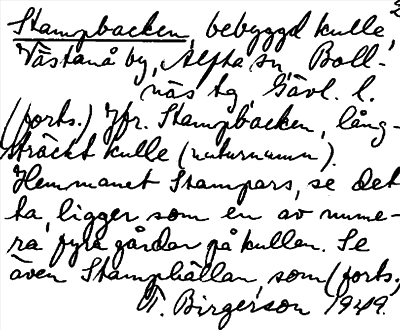 Stampbacken, bebyggd kulle, 2
Västanå by, Alfta sn, Boll-
näs tg, Gävl. l.
(forts.) Jfr. Stampbacken, lång-
sträckt kulle (naturnamn).
Hemmanet Stampars, se det
ta, ligger som en av nume-
ra fyra gårdar på kullen. Se
även Stamphällan, som (forts.)
T. Birgerson 1949.